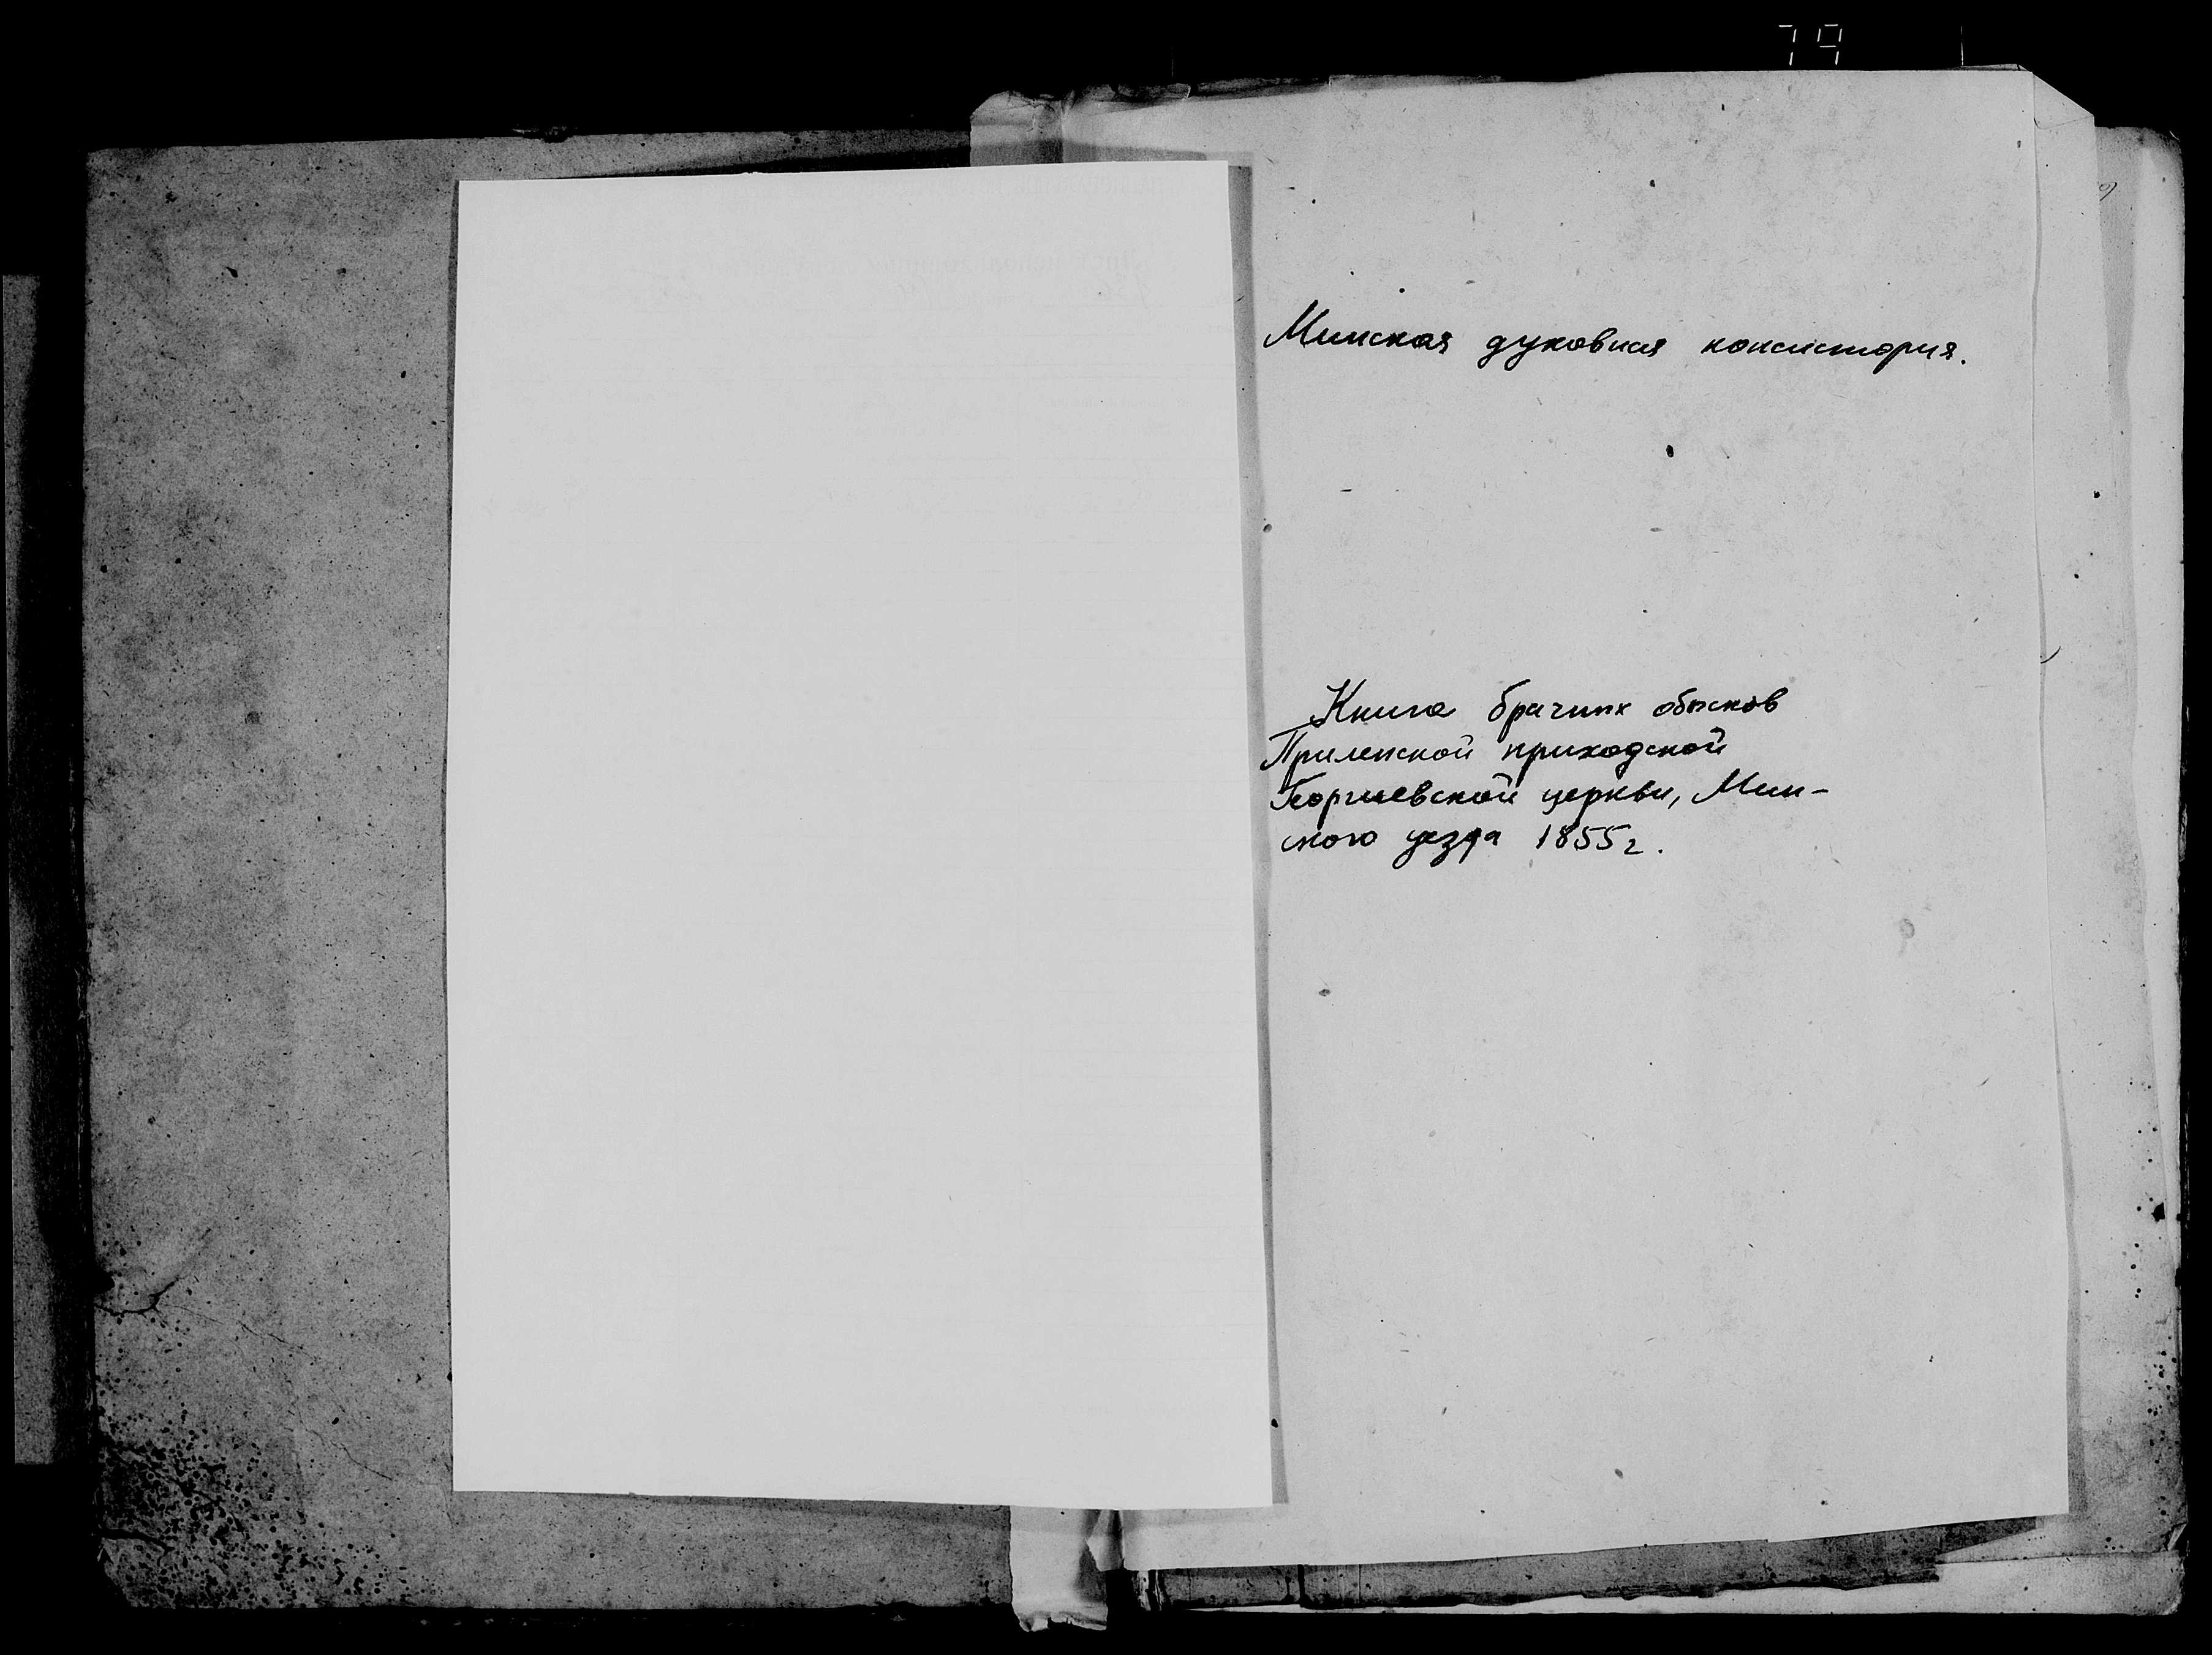 79
Минская духовная консистория.
Книга брачних обысков
Прилепской приходской
Георгиевской церкви, Мин-
ского уезда 1855 г.